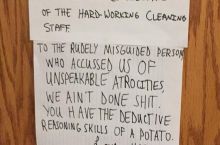 OF THE HARD-WORKING CLEANING
STAFF.
TO THE RUDELY MISGUIDED PERSON
WHO ACCUSSED US OF
UNSPEAKABLE ATROCITIES,
WE AIN'T DONE SHIT.
YOU HAVE THE DEDUCTIVE
REASONING SKILLS OF A POTATO.